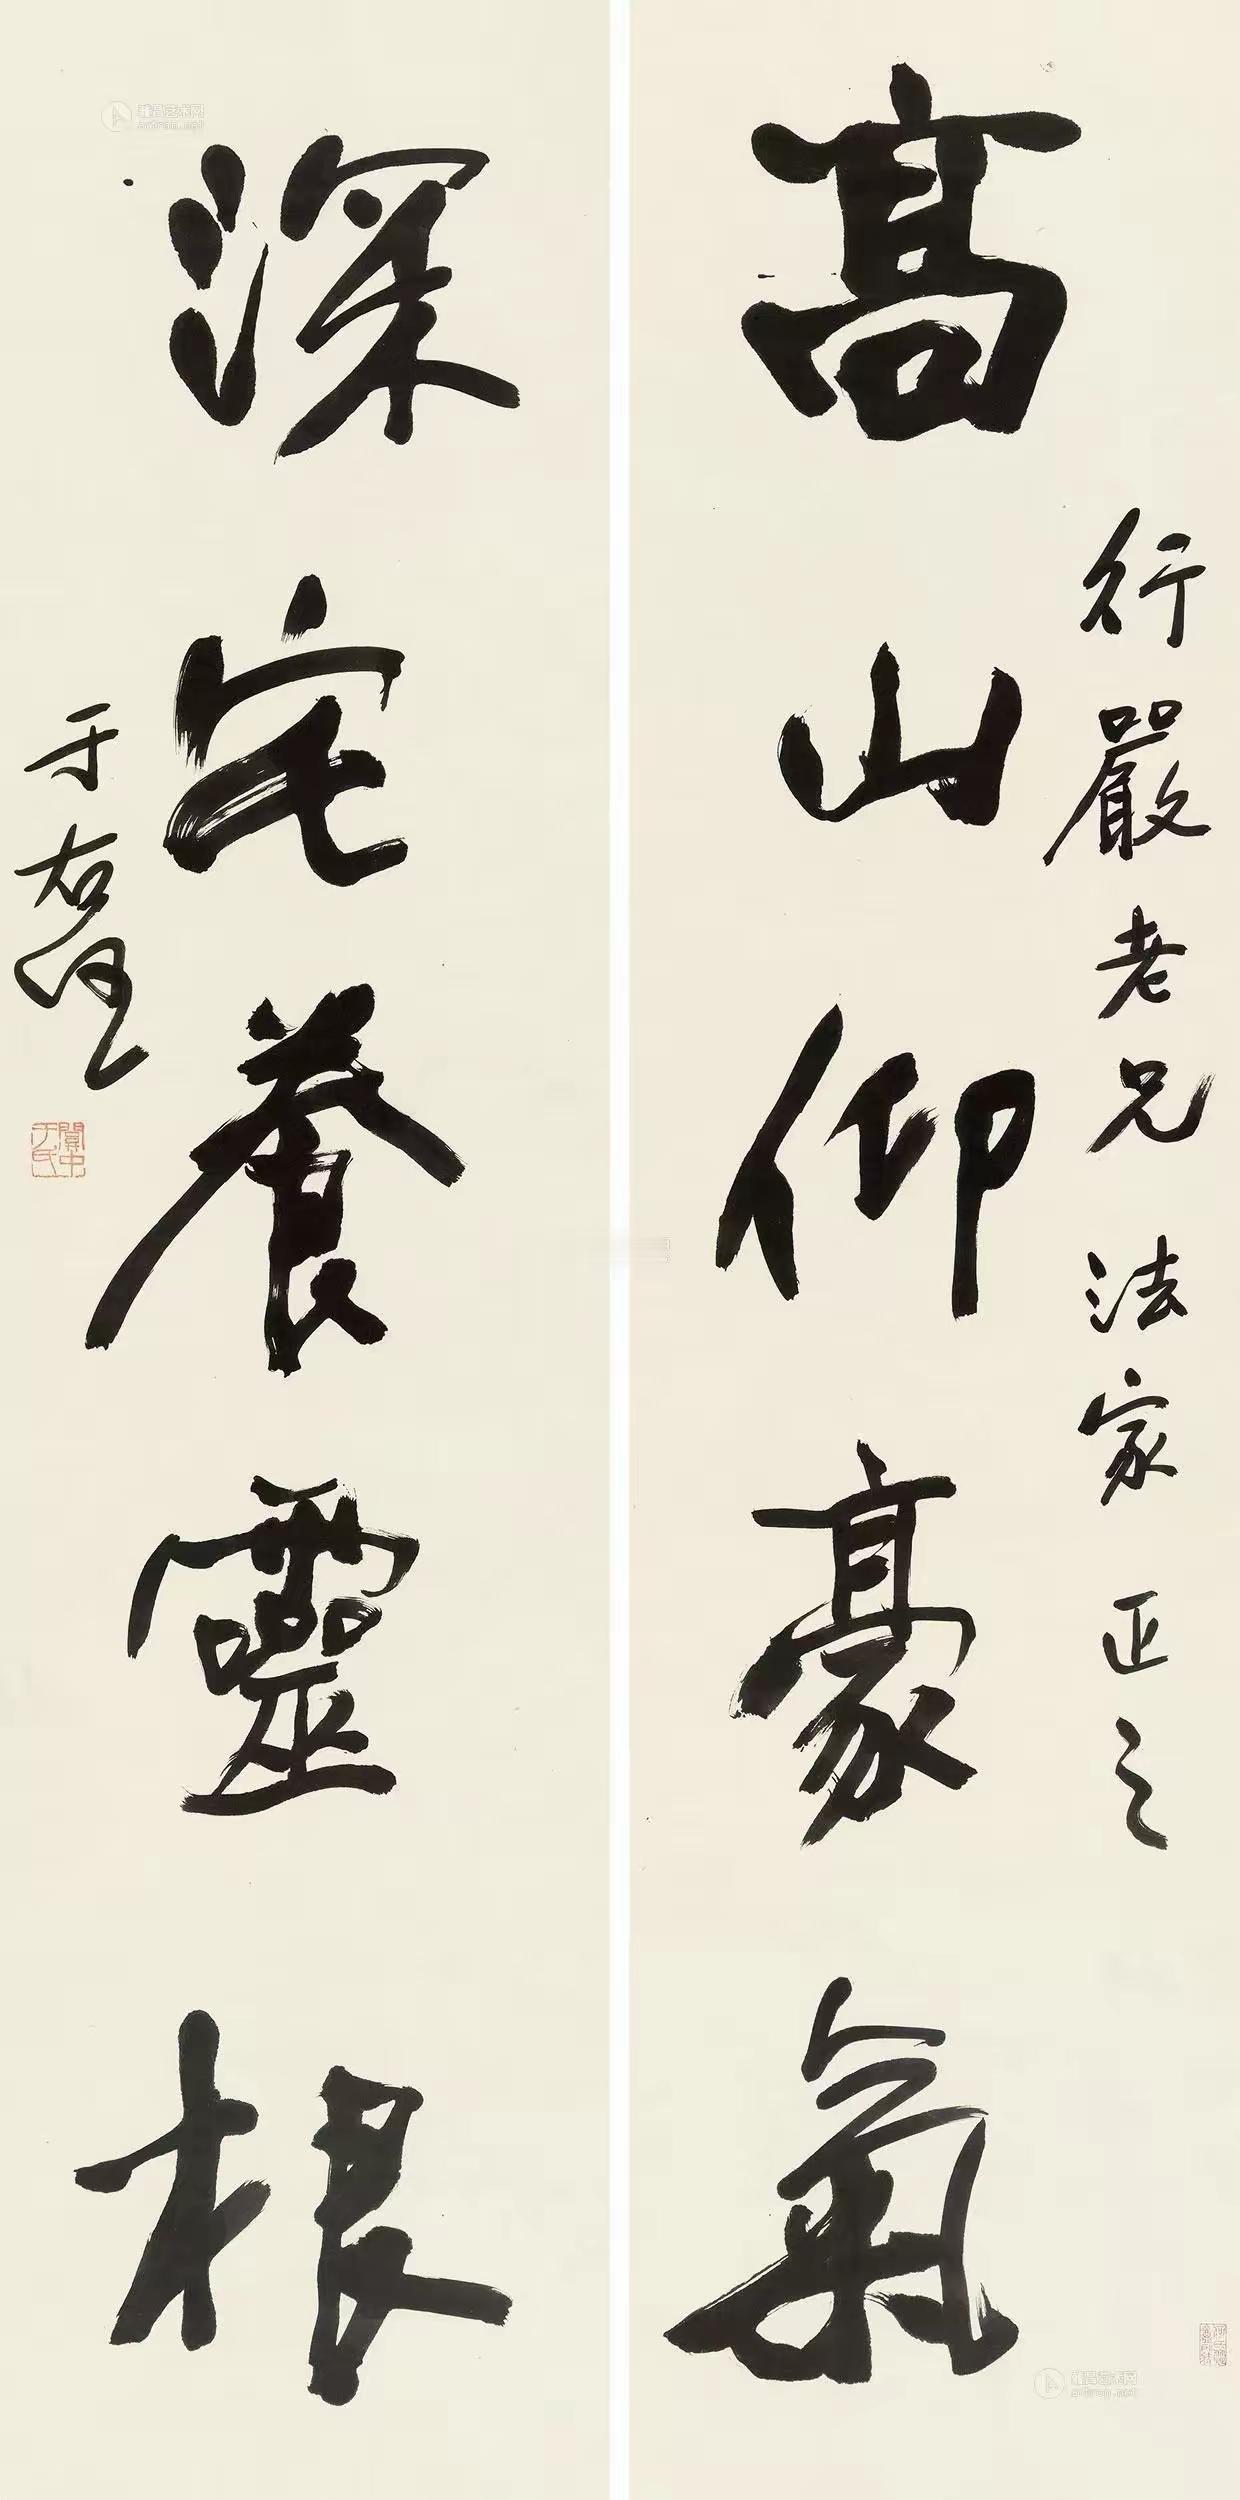 高山仰豪氣
行嚴老兄法家正之
深宅養靈根
于右任
關中于氏
雅昌艺术网
artron.net
雅昌艺术网
artron.net